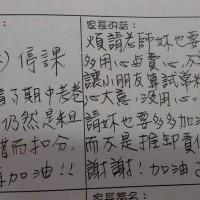 ) 停課
看了期中考卷
仍然是粗
措而扣分,
再加油!!
家長的話:
煩請老師妹也要
多用心負責心,不
讓小朋友算試常粗
心大意,沒用心。
請妹也要多多加
而不是推卸責任
謝謝!加油
家長簽名: